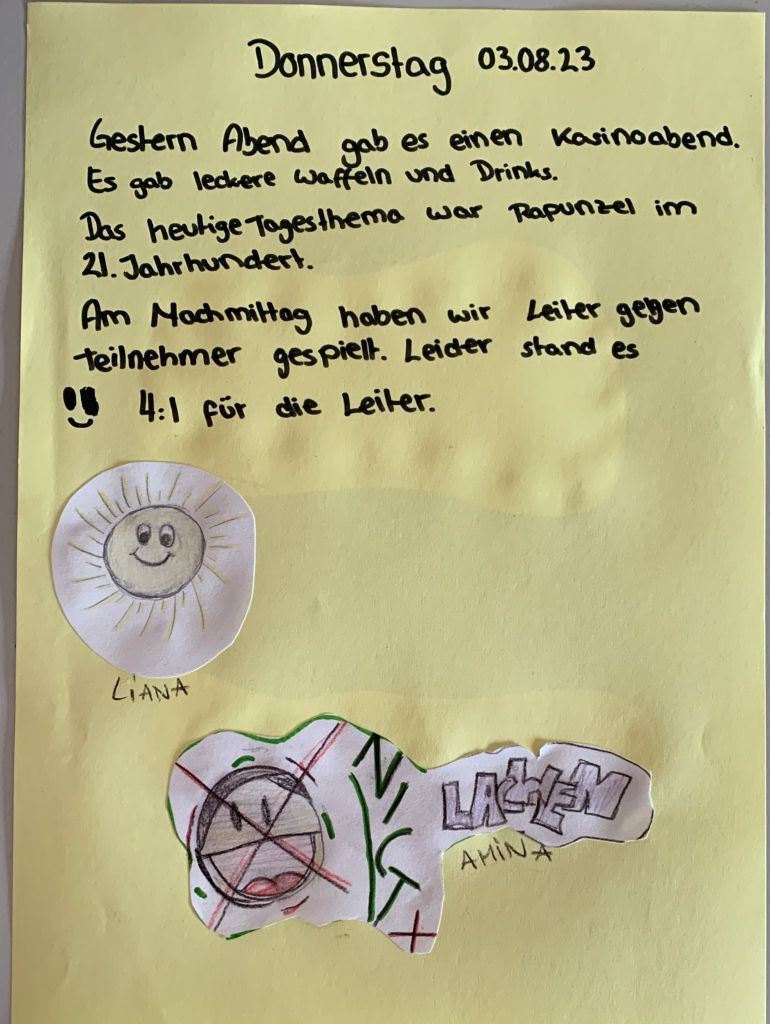 Donnerstag 03.08.23
Gestern Abend gab es einen Kasinoabend.
Es gab leckere Waffeln und Drinks.
Das heutige Tagesthema war Rapunzel im
21. Jahrhundert.
Am Nachmittag haben wir Leiter gegen
Teilnehmer gespielt. Leider stand es
4:1 für die Leiter.
LiANA
NICT
LACHEN
AMiNA